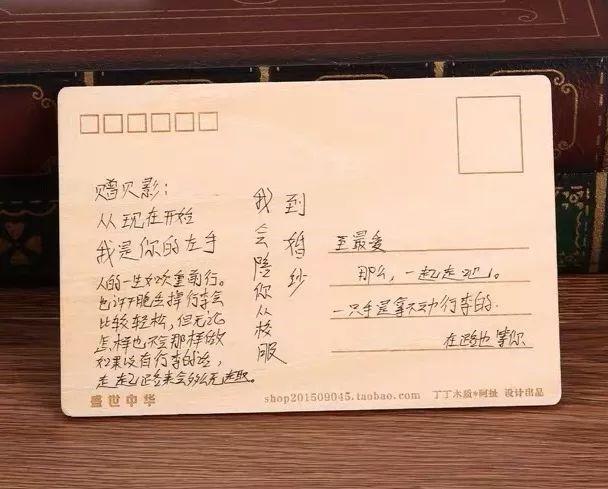 赠贝影：
从现在开始
我是你的左手
人的一生如吹重前行。
也许下胞丢掉行李会
比较轻松，但无论
怎样也不会那样做
如果没有行李的话，
走起路来会多么无趣。
我会陪你从校服
到婚纱
至最爱
那么，一起走吧。
一只手是拿不动行李的.
在路地等你
盛世中华
shop201509045.taobao.com
丁丁木质*阿扯 设计出品